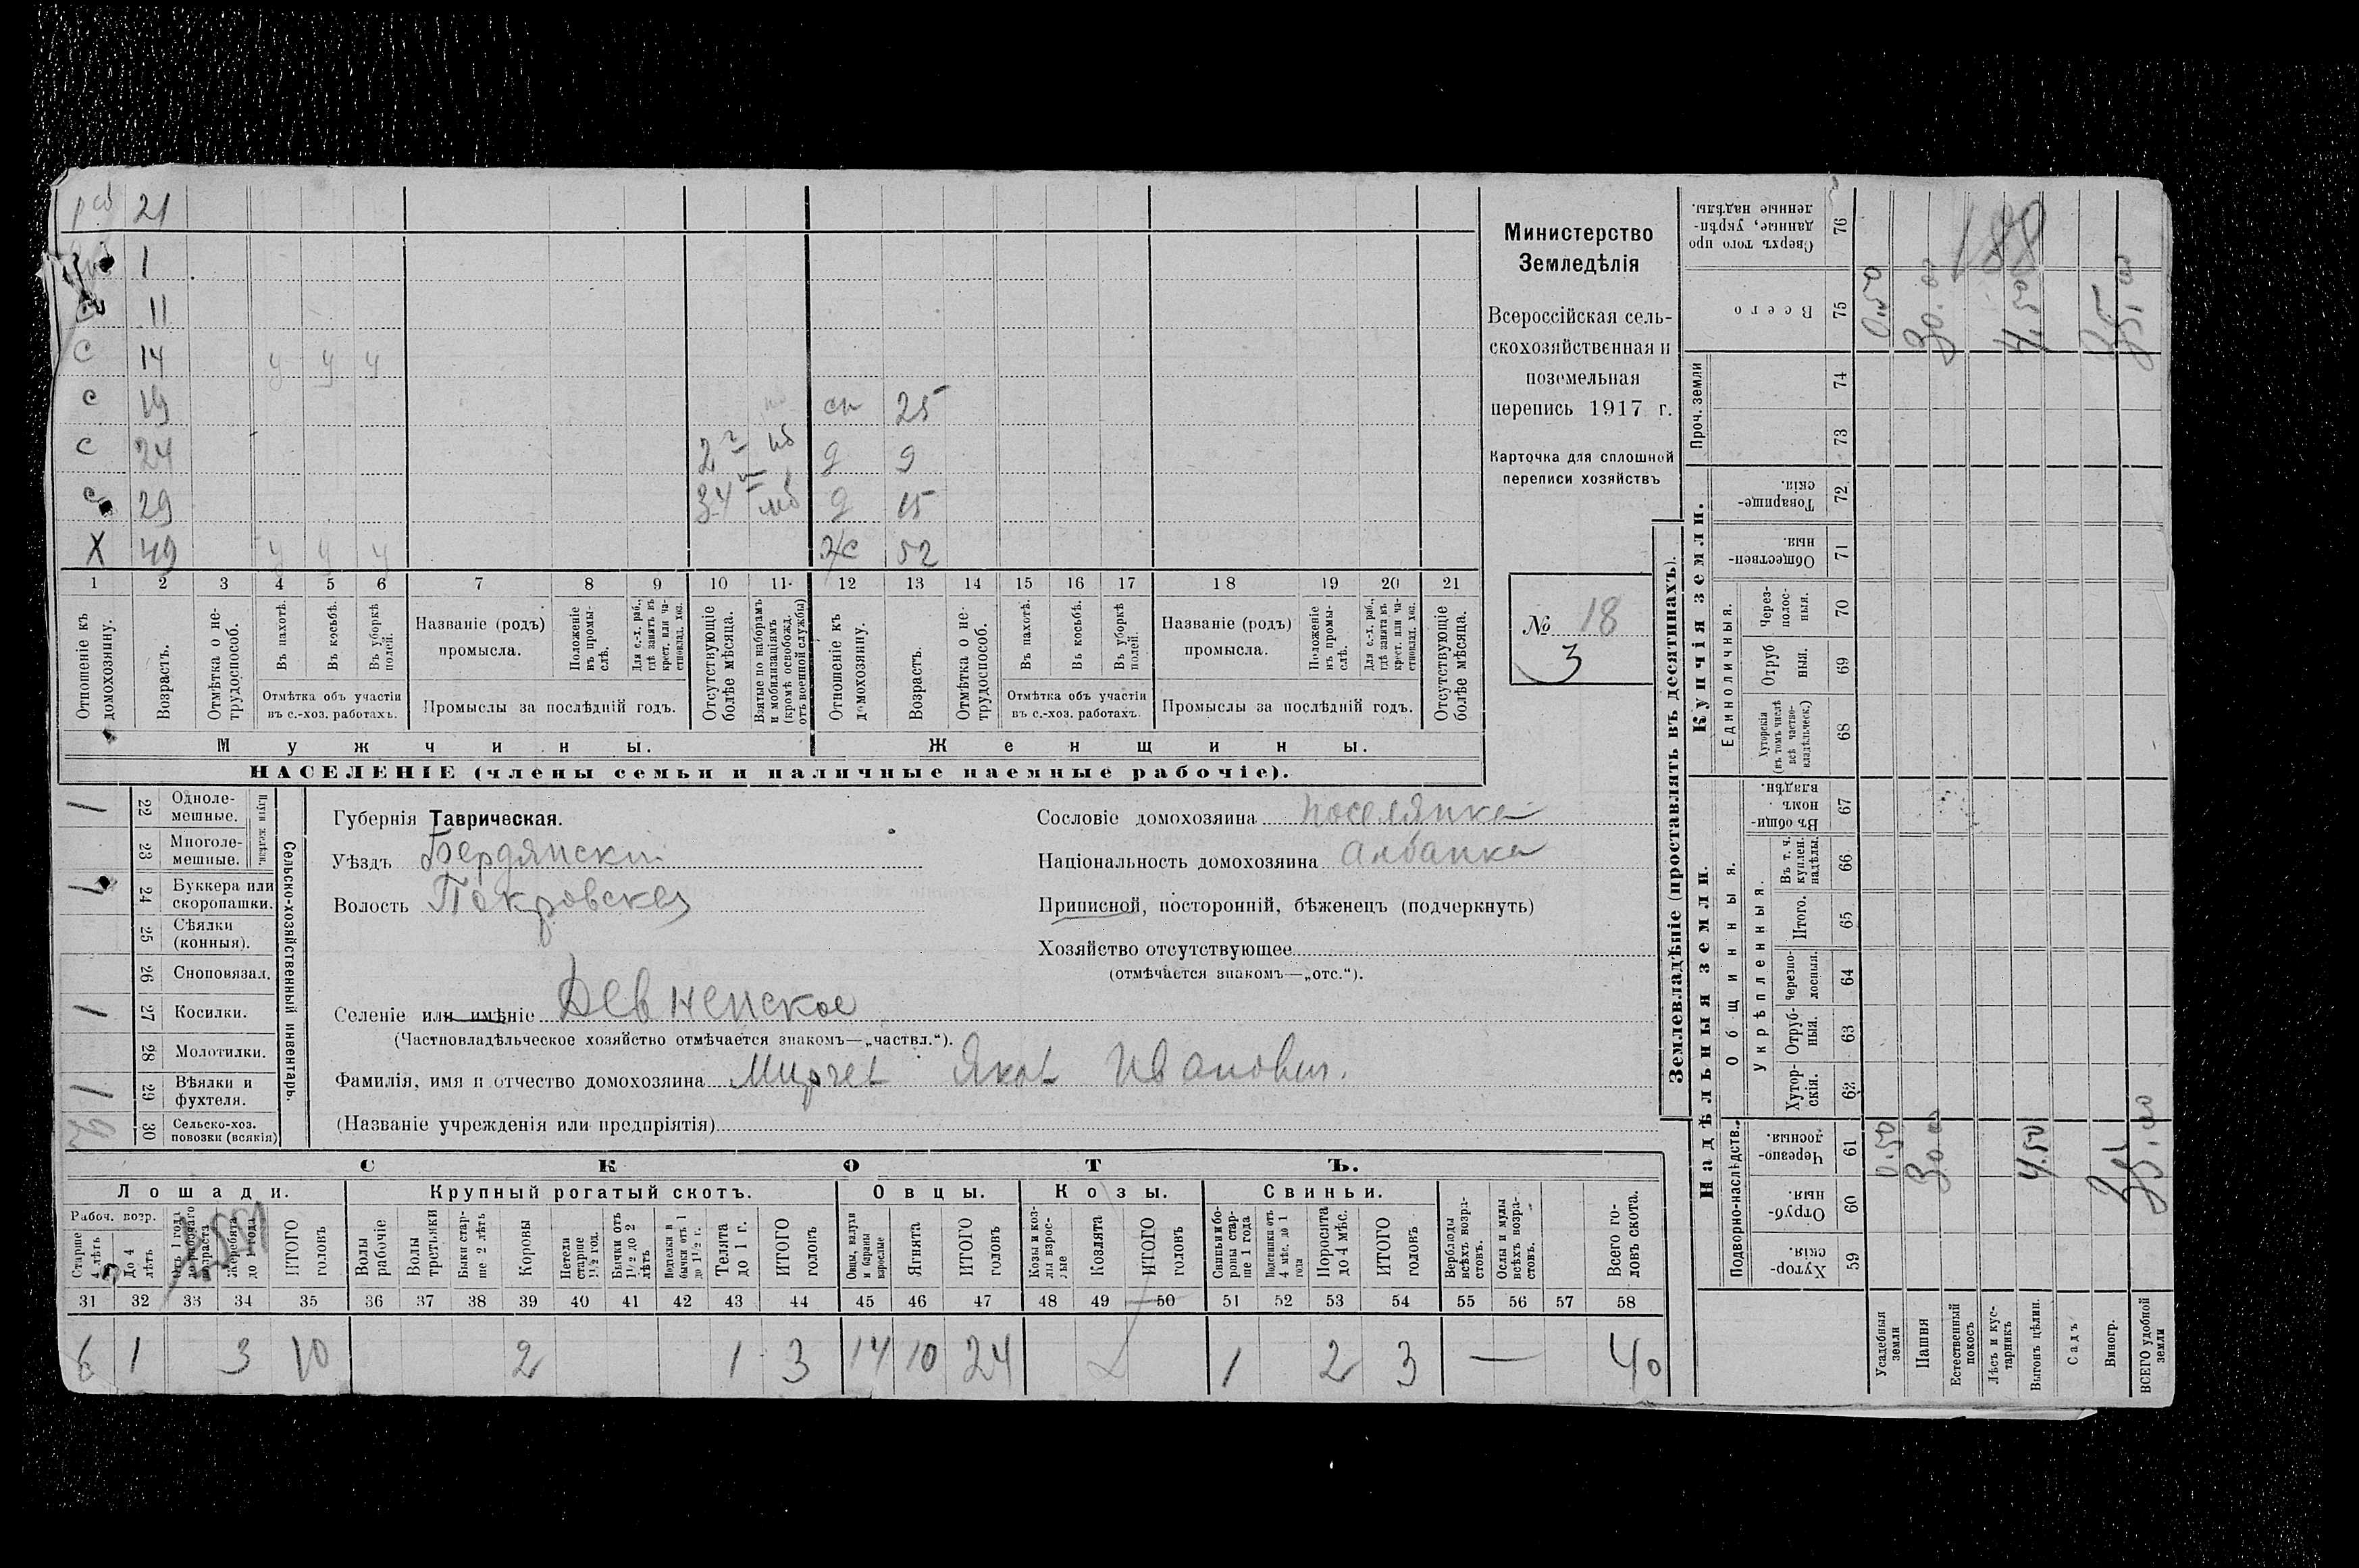 раб 21
1
11
с 14 у у у
с 19 сн 25
с 24 2 г нб д 9
с 29 34 м мб д 15
Х 49 у у у ж 52
1 2 3 4 5 6 7 8 9 10 11 12 13 14 15 16 17 18 19 20 21
Отношеніе къ домохозяину.
Возрастъ.
Отмѣтка о нетрудоспособ.
Въ пахотѣ.
Въ косьбѣ.
Въ уборкѣ полей.
Отмѣтка объ участіи въ с.-хоз. работахъ.
Названіе (родъ) промысла.
Положеніе въ промыслѣ.
Для с.-х. раб., гдѣ занятъ въ крест. или частновлад. хоз.
Промыслы за послѣдній годъ.
Отсутствующіе болѣе мѣсяца.
Взятые по наборамъ и мобилизаціямъ (кромѣ освобожд. отъ военной службы)
Отношеніе къ домохозяину.
Возрастъ.
Отмѣтка о нетрудоспособ.
Въ пахотѣ.
Въ косьбѣ.
Въ уборкѣ полей.
Отмѣтка объ участіи въ с.-хоз. работахъ.
Названіе (родъ) промысла.
Положеніе въ промыслѣ.
Для с.-х. раб., гдѣ занята въ крест. или частновлад. хоз.
Промыслы за послѣдній годъ.
Отсутствующіе болѣе мѣсяца.
Мужчины.
Женщины.
НАСЕЛЕНІЕ (члены семьи и наличные наемные рабочіе).
Министерство
Земледѣлія
Всероссійская сель-
скохозяйственная и
поземельная
перепись 1917 г.
Карточка для сплошной
переписи хозяйствъ
№ 18
3
1 22 Однолемешные.
23 Многолемешные.
1 24 Буккера или скоропашки.
25 Сѣялки (конныя).
26 Сноповязал.
1 27 Косилки.
28 Молотилки.
1 29 Вѣялки и фухтеля.
30 Сельско-хоз. повозки (всякія)
Сельско-хозяйственный инвентарь.
Губернія Таврическая.
Уѣздъ Бердянский
Волость Покровская
Селеніе или имѣніе Девненское
(Частновладѣльческое хозяйство отмѣчается знакомъ—„частвл.“).
Фамилія, имя и отчество домохозяина Мирчев Яков Иванович.
(Названіе учрежденія или предпріятія)
Сословіе домохозяина поселянка
Національность домохозяина Албанка
Приписной, посторонній, бѣженецъ (подчеркнуть)
Хозяйство отсутствующее
(отмѣчается знакомъ—„отс.“).
СКОТЪ.
Лошади. Крупный рогатый скотъ. Овцы. Козы. Свиньи.
Рабоч. возр.
Старше 4 лѣтъ
До 4 лѣтъ
Отъ 1 года до рабочаго возраста
Жеребята до 1 года
ИТОГО головъ
Волы рабочіе
Волы третьяки
Быки старше 2 лѣтъ
Коровы
Нетели старше 1½ год.
Бычки отъ 1½ до 2 лѣтъ
Подтелки и бычки отъ 1 до 1½ г.
Телята до 1 г.
ИТОГО головъ
Овцы, валухи и бараны взрослые
Ягнята
ИТОГО головъ
Козы и козлы взрослые
Козлята
ИТОГО головъ
Свиньи и боровы старше 1 года
Подсвинки отъ 4 мѣс. до 1 года
Поросята до 4 мѣс.
ИТОГО головъ
Верблюды всѣхъ возрастовъ.
Ослы и мулы всѣхъ возрастовъ.
Всего головъ скота.
31 32 33 34 35 36 37 38 39 40 41 42 43 44 45 46 47 48 49 50 51 52 53 54 55 56 57 58
6 1 3 10 2 1 3 14 10 24 1 2 3 — 40
Землевладѣніе (проставлять въ десятинахъ).
Сверхъ того проданные, укрѣпленные надѣлы. 76
Всего 75
Проч. земли 74 73
Купчія земли.
Товарищескія. 72
Общественныя. 71
Единоличныя.
Черезполосныя. 70
Отрубныя. 69
Хуторскія (въ томъ числѣ всѣ частновладѣльческ.) 68
Надѣльныя земли.
Общинныя.
Въ общинномъ владѣн. 67
Укрѣпленныя.
Въ т. ч. куплен. надѣлы. 66
Итого. 65
Черезполосныя. 64
Отрубныя. 63
Хуторскія. 62
Подворно-наслѣдств.
Черезполосныя. 61
Отрубныя. 60
Хуторскія. 59
188
0.50 30.00 4,50 35 35,00
0.50 30.00 4.50 35 35,00
Усадебныя земли
Пашня
Естественный покосъ
Лѣсъ и кустарникъ
Выгонъ цѣлин.
Садъ
Виногр.
ВСЕГО удобной земли